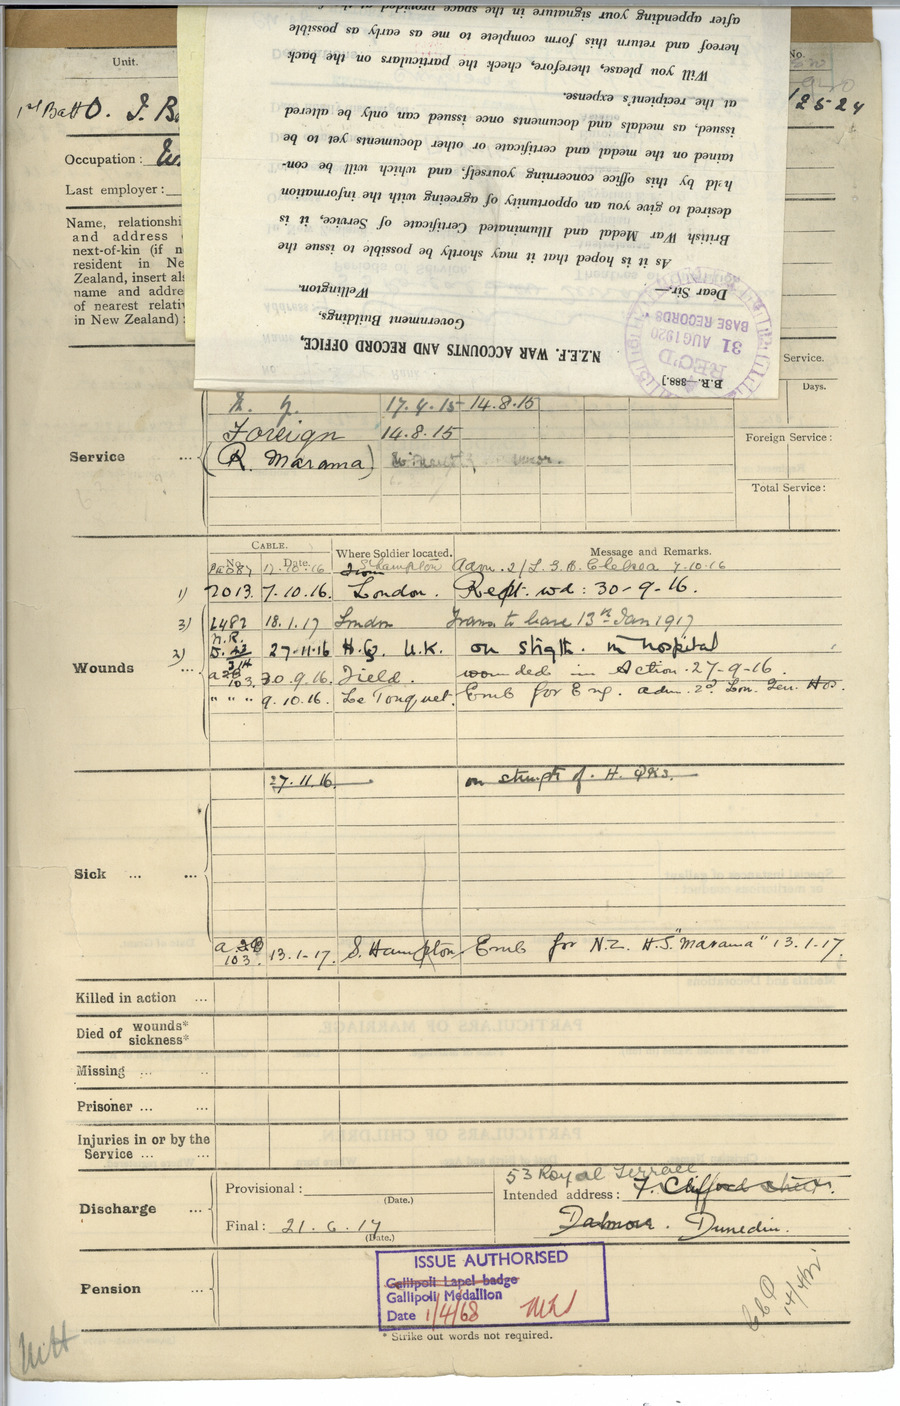 Unit.
No.
1st Batt O. I. B
12524
Occupation :
Last employer :
Name, relationshi
and address
next-of-kin (if n
resident in Ne
Zealand, insert als
name and addre
of nearest relativ
in New Zealand) :
B.R.—388.]
REC'D
31 AUG 1920
BASE RECORDS
N.Z.E.F. WAR ACCOUNTS AND RECORD OFFICE,
Government Buildings,
Wellington.
Dear Sir,—
As it is hoped that it may shortly be possible to issue the
British War Medal and Illuminated Certificate of Service, it is
desired to give you an opportunity of agreeing with the information
held by this office concerning yourself, and which will be con-
tained on the medal and certificate or other documents yet to be
issued, as medals and documents once issued can only be altered
at the recipient's expense.
Will you, please, therefore, check the particulars on the back
hereof and return this form complete to me as early as possible
after appending your signature in the space provided at the
Service.
Days.
N. Z. 17.4.15 14.8.15
Foreign 14.8.15
Foreign Service :
Service ...
(R. Marama)
Total Service :
CABLE.
No. Date. Where Soldier located. Message and Remarks.
17.10.16 S'Hampton Adm. 2/L.G.H. Chelsea 7.10.16
1) 2013. 7.10.16. London. Rept. wd : 30-9-16.
3) 2482 18.1.17 London Trans to base 13th Jan 1917
N.R.
Wounds ... 2) 27-11-16 H.Q. U.K. on strgth. in hospital
103. 30.9.16. Field. wounded in Action. 27-9-16.
" " " 9.10.16. Le Touquet. Emb for Eng. adm. 2nd Lon. Gen. Hos.
27.11.16. on strength of. H. QRS.
Sick ... ...
103. 13.1.17. S. Hampton Emb for N.Z. H.S. "Marama" 13.1.17.
Killed in action ...
Died of wounds*
sickness*
Missing ... ...
Prisoner ... ...
Injuries in or by the
Service ... ...
Discharge ...
Provisional :
(Date.)
Final : 21.6.17
(Date.)
53 Royal Terrace
Intended address : 7. Clifford Street.
Dalmore. Dunedin.
Pension ...
ISSUE AUTHORISED
Gallipoli Lapel badge
Gallipoli Medallion
Date 1/4/68
* Strike out words not required.